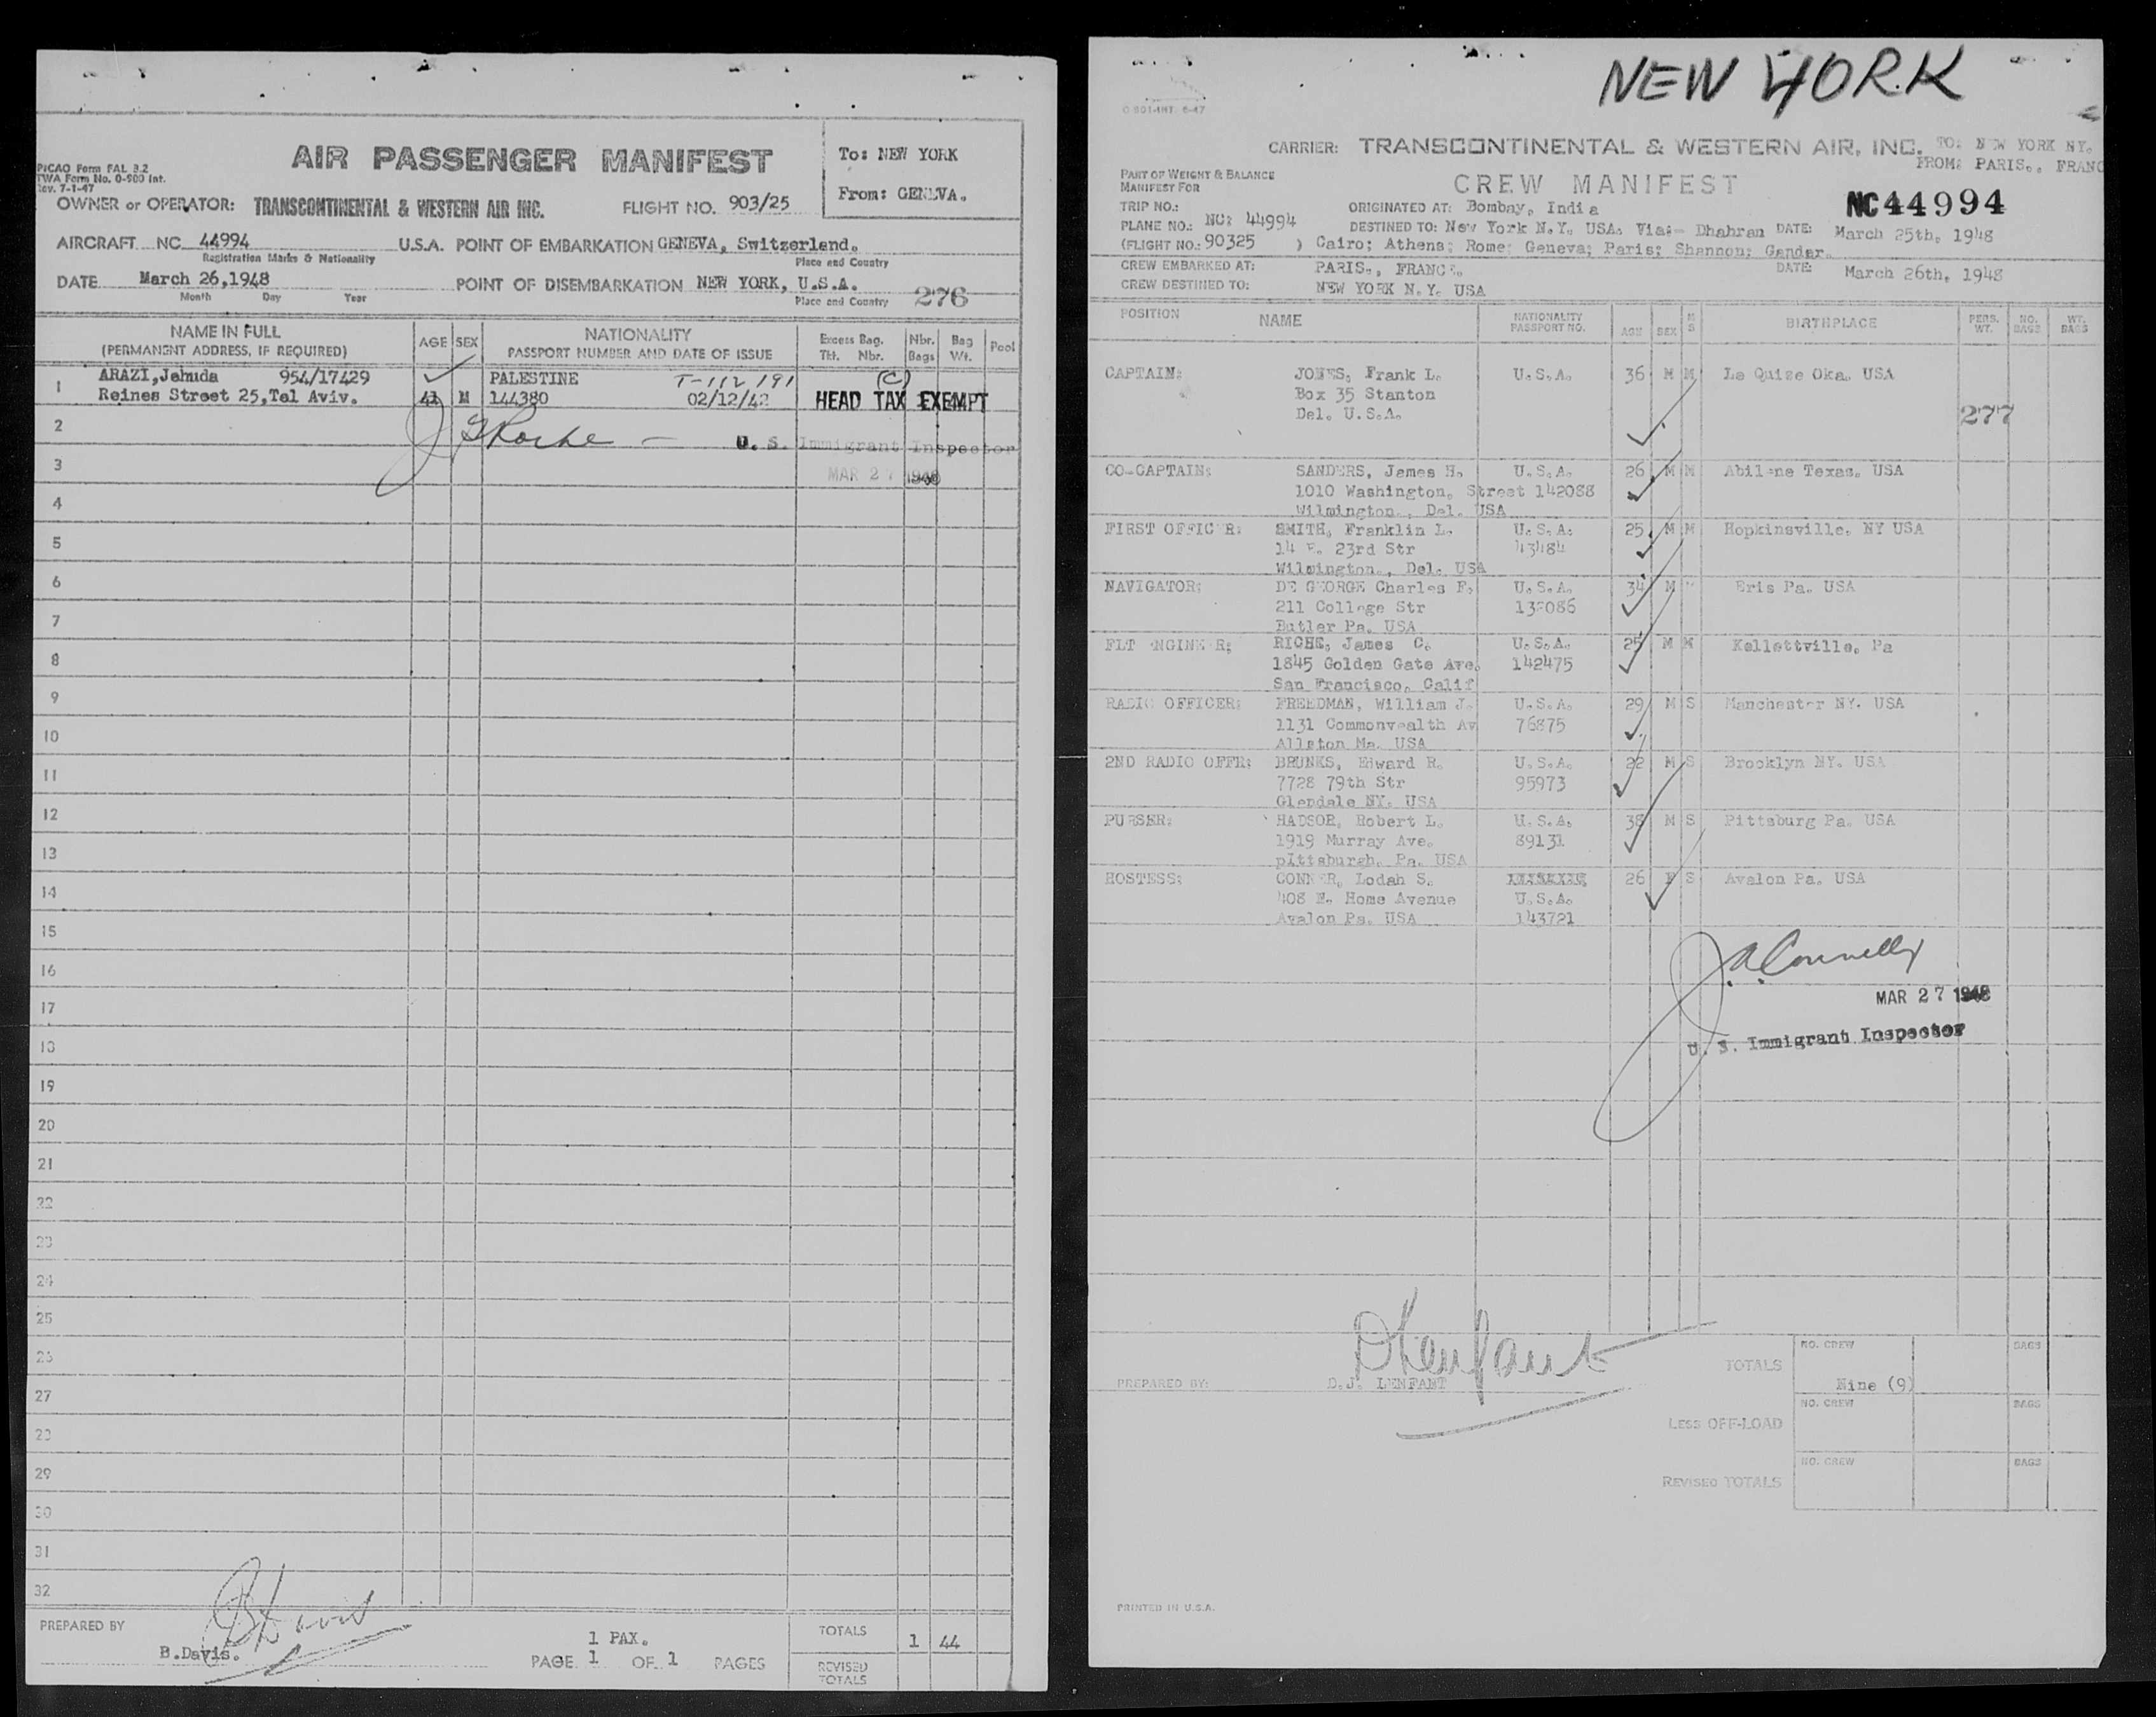 PICAO Form FAL 3.2
TWA Form No. 0-900 Int.
Rev. 7-1-47
AIR PASSENGER MANIFEST
To: NEW YORK
From: GENEVA.
OWNER or OPERATOR: TRANSCONTINENTAL & WESTERN AIR INC. FLIGHT NO. 903/25
AIRCRAFT NC 44994 U.S.A. POINT OF EMBARKATION GENEVA, Switzerland.
Registration Marks & Nationality Place and Country
DATE March 26,1948 POINT OF DISEMBARKATION NEW YORK, U.S.A.
Month Day Year Place and Country 276
NAME IN FULL AGE SEX NATIONALITY Excess Bag. Nbr. Bag Pool
(PERMANENT ADDRESS, IF REQUIRED) PASSPORT NUMBER AND DATE OF ISSUE Tkt. Nbr. Bags Wt.
1 ARAZI,Jehuda 954/17429 PALESTINE T-112191 (C)
Reines Street 25,Tel Aviv. 41 M 144380 02/12/42 HEAD TAX EXEMPT
2 U. S. Immigrant Inspector
3 MAR 27 1948
4
5
6
7
8
9
10
11
12
13
14
15
16
17
18
19
20
21
22
23
24
25
26
27
28
29
30
31
32
PREPARED BY
B.Davis.
1 PAX.
PAGE 1 OF 1 PAGES
TOTALS 1 44
REVISED TOTALS
NEW YORK
O 801-INT. 6-47
CARRIER: TRANSCONTINENTAL & WESTERN AIR, INC. TO: NEW YORK NY.
FROM: PARIS., FRANC
PART OF WEIGHT & BALANCE
MANIFEST FOR
CREW MANIFEST
TRIP NO.: ORIGINATED AT: Bombay, India NC44994
PLANE NO.: NC: 44994 DESTINED TO: New York N.Y. USA: Via:- Dhahran DATE: March 25th, 1948
(FLIGHT NO.: 90325 ) Cairo; Athens; Rome; Geneva; Paris; Shannon; Gandar.
CREW EMBARKED AT: PARIS., FRANCE. DATE: March 26th, 1948
CREW DESTINED TO: NEW YORK N.Y. USA
POSITION NAME NATIONALITY PASSPORT NO. AGE SEX M S BIRTHPLACE PERS. WT. NO. BAGS WT. BAGS
CAPTAIN: JONES, Frank L. U.S.A. 36 M M Le Quize Oka. USA
Box 35 Stanton
Del. U.S.A. 277
CO-CAPTAIN: SANDERS, James H. U.S.A. 26 M M Abilene Texas. USA
1010 Washington, Street 142088
Wilmington., Del. USA
FIRST OFFICER: SMITH, Franklin L. U.S.A. 25 M M Hopkinsville, NY USA
14 E. 23rd Str 43484
Wilmington., Del. USA
NAVIGATOR: DE GEORGE Charles F. U.S.A. 34 M Eris Pa. USA
211 College Str
Butler Pa. USA
FLT ENGINEER: RICHE, James C. U.S.A. 25 M M Kellettville, Pa
1845 Golden Gate Ave. 142475
San Francisco, Calif
RADIO OFFICER: FREEDMAN, William J. U.S.A. 29 M S Manchester NY. USA
1131 Commonwealth Av 76875
Allston Ma. USA
2ND RADIO OFFR: BRUNKS, Edward R. U.S.A. 22 M S Brooklyn NY. USA
7728 79th Str 95973
Glendale NY. USA
PURSER: HADSOR, Robert L. U.S.A. 38 M S Pittsburg Pa. USA
1919 Murray Ave. 89131
pIttsburgh, Pa. USA
HOSTESS: CONNER, Lodah S. 26 F S Avalon Pa. USA
408 E. Home Avenue U.S.A.
Avalon Pa. USA 143721
J.A. Connelly
MAR 27 1948
U. S. Immigrant Inspector
PREPARED BY: D.J. LENFANT
TOTALS NO. CREW Nine (9) BAGS
LESS OFF-LOAD NO. CREW BAGS
REVISED TOTALS NO. CREW BAGS
PRINTED IN U.S.A.